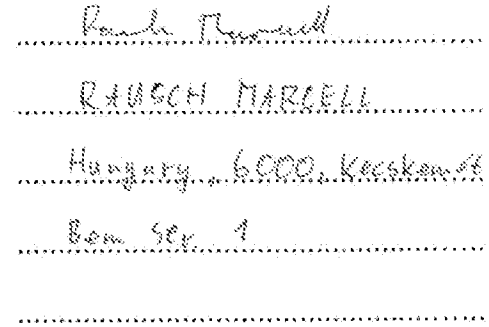 Rausch Marcell
RAUSCH MARCELL
Hungary, 6000, Kecskemét
Bem str. 1